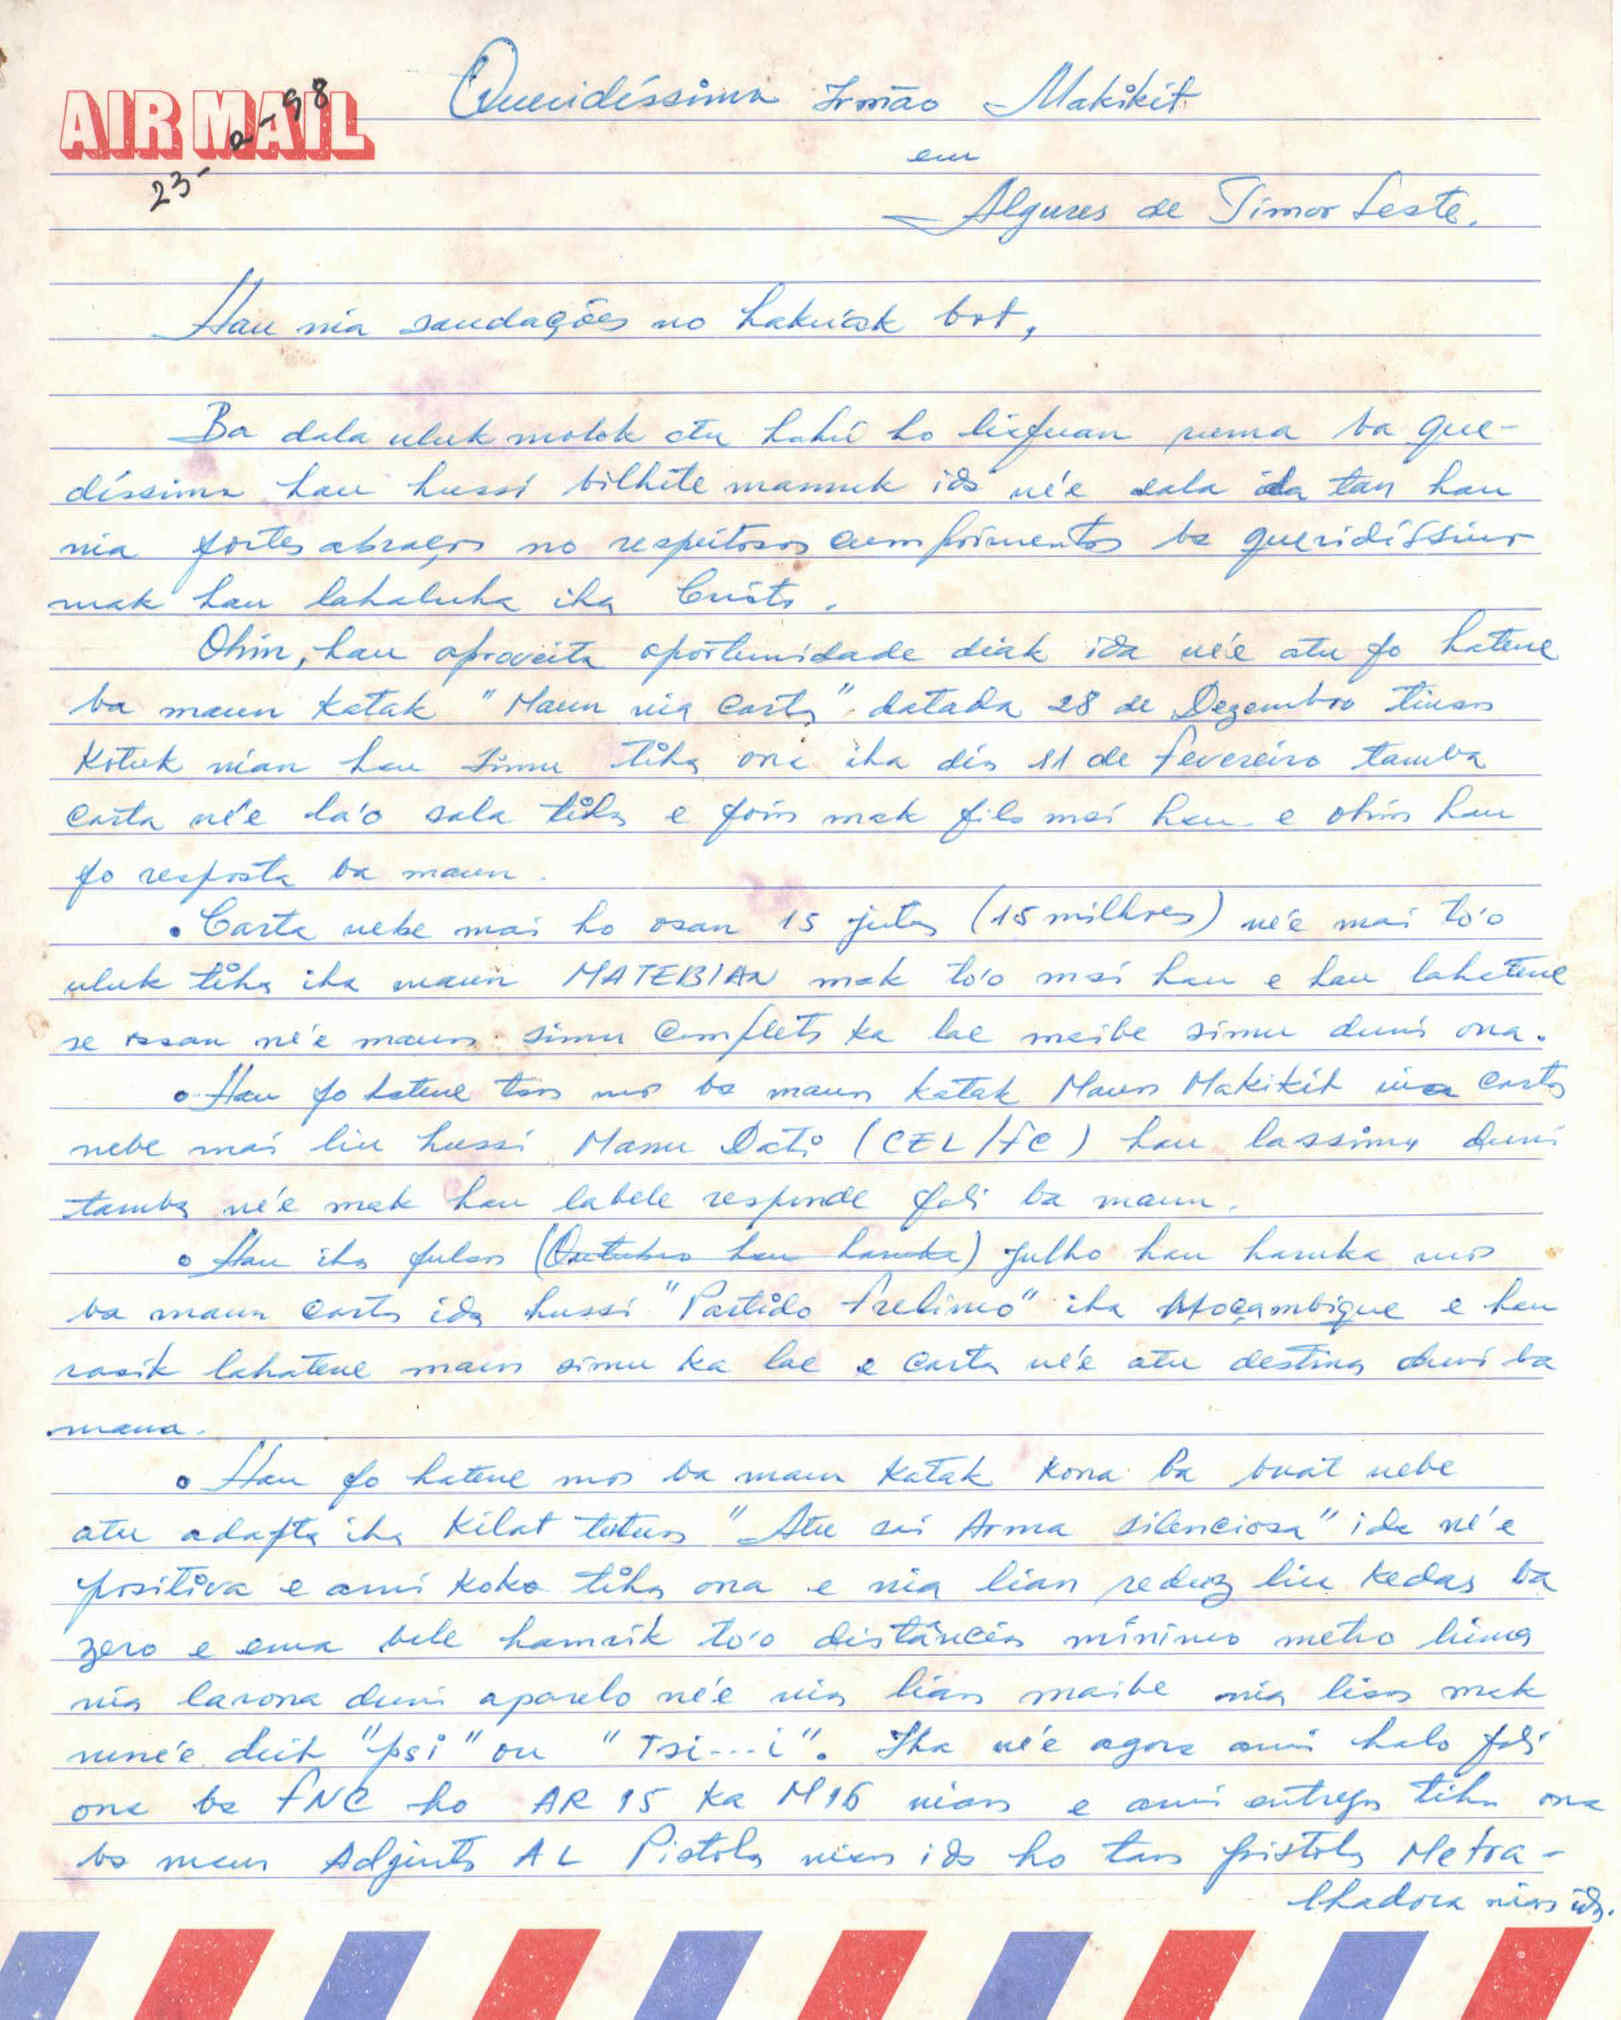 AIR MAIL
23-2-98
Queridíssimo Irmão Makikit
em
Algures de Timor Leste.
Hau nia saudações no hakuak bot,
Ba dala uluk molok atu hahú ho liafuan ruma ba que-
díssimo hau hussi bilhete mamuk ida ne'e sala ida tan hau
nia fortes abraços no respeitosos cumprimentos ba queridíssimo
mak hau lahaluha iha Cristo.
Ohin, hau aproveita oportunidade diak ida ne'e atu fo hatene
ba maun katak "Maun nia carta" datada 28 de Dezembro tinan
kotuk nian hau simu tiha ona iha dia 11 de fevereiro tamba
carta ne'e la'o sala tiha e foin mak fila mai hau e ohin hau
fo resposta ba maun.
• Carta nebe mai ho osan 15 jutas (15 milhoes) ne'e mai to'o
uluk tiha iha maun MATEBIAN mak to'o mai hau e hau lahatene
se ossan ne'e maun simu completo ka lae maibe simu duni ona.
• Hau fo hatene tan mos ba maun katak Maun Makikit nia carta
nebe mai liu hussi Manu Dati (CEL/FC) hau lassimu duni
tamba ne'e mak hau labele responde fali ba maun.
• Hau iha fulan (Outubro hau haruka) Julho hau haruka mos
ba maun carta ida hussi "Partido Frelimo" iha Moçambique e hau
rasik lahatene maun simu ka lae e carta ne'e atu destina duni ba
mana.
• Hau fo hatene mos ba maun katak kona ba buat nebe
atu adapta iha kilat tutun "Atu sai Arma silenciosa" ida ne'e
positiva e ami koko tiha ona e nia lian reduz liu kedas ba
zero e ema bele hamrik to'o distância minimo metro lima
nia larona duni aparelo ne'e nia lian maibe nia lian mak
nune'e deit "psi" ou "Tsi...i". Iha ne'e agora ami halo fali
ona ba FNC ho AR 15 ka M16 nian e ami entrega tiha ona
ba maun Adjunto AL Pistola nian ida ho tan pistola Metra-
lhadora nian ida.